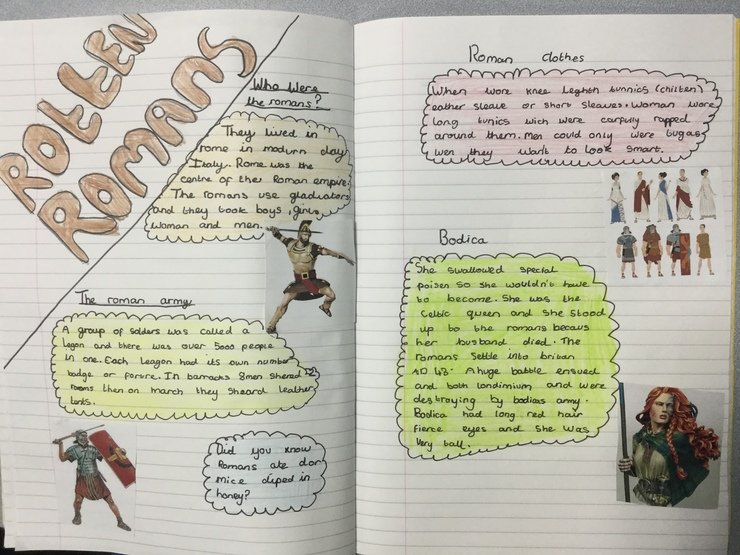 ROTTEN
ROMANS
Who were
the romans?
They lived in
rome in modurn day
Italy. Rome was the
centre of the Roman empire.
The romans use gladiators
and they took boys, girls,
woman and men.
The roman army
A group of solders was called a
legon and there was over 5000 people
in one. Each Leagon had its own number
badge or In barracks 8men shered
rooms then on march they sheard leather
tents.
Did you know
Romans ate dor
mice diped in
honey?
Roman clothes
When wore knee leghth tunnics (chilten)
eather sleave or short sleaves. Woman wore
long tunics wich were carfully rapped
around them. Men could only were tugas
wen they want to look smart.
Bodica
She swallowed special
poisen so she wouldn't have
to become. She was the
Celtic queen and she stood
up to the romans becaus
her husband died. The
romans settle into britan
AD 43. A huge battle ensued
and both londinium and were
destroying by bodicas army.
Bodica had long red hair
fierce eyes and she was
very tall.